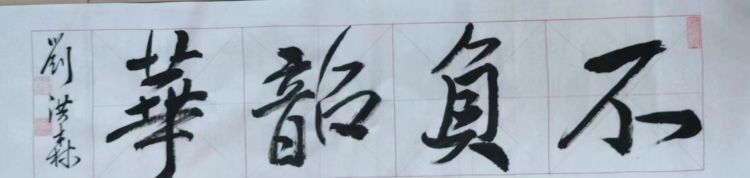 不負韶華
劉洪森